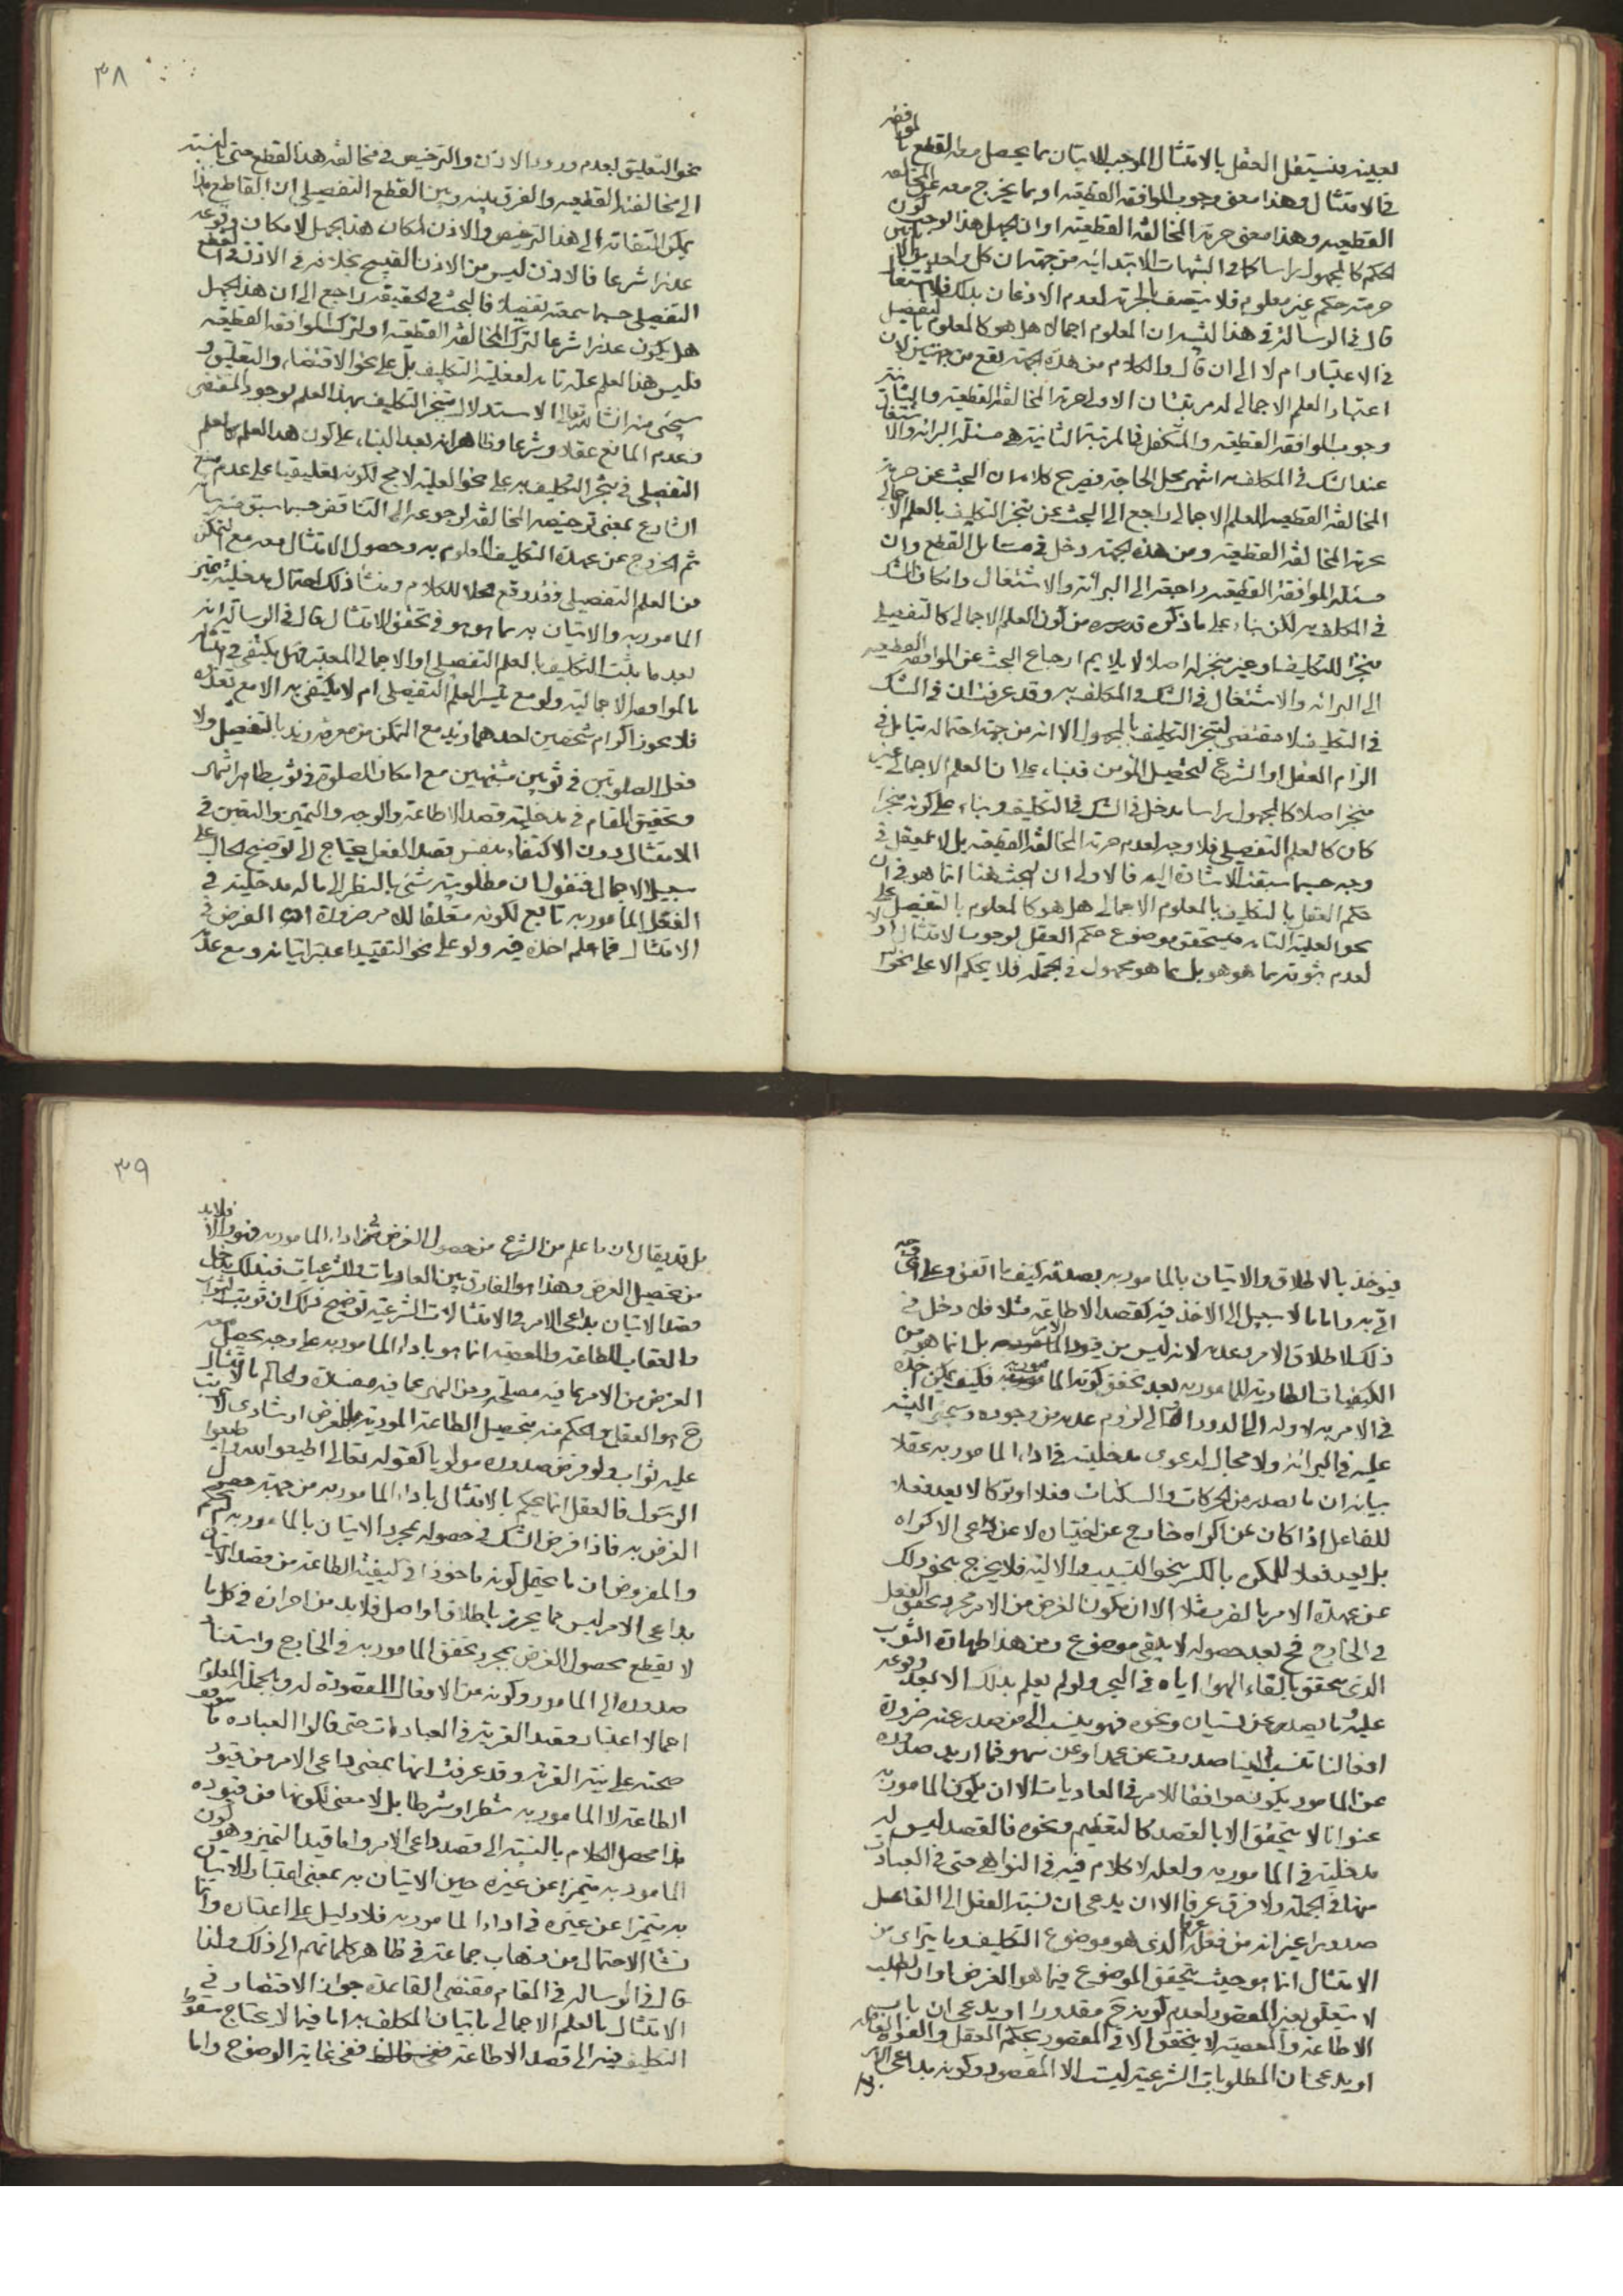 لعينه فيستقل العقل بالامتثال الموجب للاتيان بما يحصل معه القطع بالموافقة
في الامتثال وهذا معنى وجوب الموافقة القطعية او بما يخرج معه عن المخالفة
القطعية وهذا معنى حرمة المخالفة القطعية او ان يجهل هذا لوجب كون
الحكم كالمجهول راسا كما في الشبهات الابتدائية من جهة ان كل واحد
حرمته حكم غير معلوم فلا يتصف بالحرمة لعدم الاذعان بذلك
قال في الرسالة في هذا المعلوم اجمالا هل هو كالمعلوم بالتفصيل
في الاعتبار ام لا الى ان قال والكلام من هذه الجهة يقع من جهتين لان
اعتبار العلم الاجمالي له مرتبتان الاولى حرمة المخالفة القطعية والثانية
وجوب الموافقة القطعية والمتكفل في المرتبة الثانية هي مسئلة البرائة والاشتغال
عند الشك في المكلف به انتهى محل الحاجة فصريح كلامه ان البحث عن حرمة
المخالفة القطعية للعلم الاجمالي راجع الى البحث عن تنجز التكليف بالعلم الاجمالي
بحرمة المخالفة القطعية ومن هذه الجهة دخل في مسائل القطع وان
مسئلة الموافقة القطعية راجعة الى البرائة والاشتغال وانكان الشك
في المكلف به لكن بناء على ما ذكره قدس سره من كون العلم الاجمالي كالتفصيلي
منجزا للتكليف او غير منجز له اصلا لا يلايم ارجاع البحث عن الموافقة القطعية
الى البرائة والاشتغال في الشك في المكلف به وقد عرفت ان في الشك
في التكليف لا مقتضى لتنجز التكليف بالمجهول الا انه من جهة احتماله يقابل في
الزام العقل او الشرع لتحصيل المؤمن فبناء على ان العلم الاجمالي غير
منجز اصلا كالمجهول راسا يدخل في الشك في التكليف وبناء على كونه منجزا
كان كالعلم التفصيلي فلا وجه لعدم حرمة المخالفة القطعية بل لا يعقل في
وجه حسبما سبقت الاشارة اليه فالاولى ان البحث هنا انما هو في ان
حكم العقل بالتكليف بالمعلوم الاجمالي هل هو كالمعلوم بالتفصيل على
نحو العلية التامة فيتحقق موضوع حكم العقل لوجوب الامتثال او لا
لعدم ثبوته بما هو هو بل بما هو مجهول في الجملة فلا يحكم الا على نحو
٣٨
نحو التعليق لعدم ورود الاذن والترخيص في مخالفة هذا القطع حتى بالنسبة
الى مخالفة القطعية والفرق بينه وبين القطع التفصيلي ان القاطع
يمكن التفاته الى هذا الترخيص والاذن لمكان هذا الجهل لامكان وقوعه
عذرا شرعا فالاذن ليس من الاذن القبيح بخلافه في الاذن في القطع
التفصيلي حسبما سمعته تفصيلا فالبحث في الحقيقة راجع الى ان هذا الجهل
هل يكون عذرا شرعا لترك المخالفة القطعية او لترك الموافقة القطعية
فليس هذا العلم علة تامة لفعلية التكليف بل على نحو الاقتضاء والتعليق و
سيجئ منه انشاء الله تعالى الاستدلال لتنجز التكليف بهذا العلم لوجود المقتضى
وعدم المانع عقلا وشرعا وظاهرانه بعد البناء على كون هذا العلم كالعلم
التفصيلي في تنجز التكليف به على نحو العلية لا مح لكونه تعليقيا على عدم منع
الشارع بمعنى ترخيصه المخالفة لرجوعه الى التناقض حسبما سبق منه بيانه
ثم الخروج عن عهدة التكليف المعلوم به وحصول الامتثال معه مع التمكن
من العلم التفصيلي فقد وقع محلا للكلام ومنشأ ذلك احتمال مدخلية تميز
المامور به والاتيان به بما هو هو في تحقق الامتثال قال في الرسالة انه
بعد ما يثبت التكليف بالعلم التفصيلي او الاجمالي المعتبر فهل يكتفى في امتثاله
بالموافقة الاجمالية ولو مع تيسر العلم التفصيلي ام لا يكتفى به الا مع تعذره
فلا يجوز اكرام شخصين احدهما زيد مع التمكن من معرفة زيد بالتفصيل ولا
فعل الصلوتين في ثوبين مشتبهين مع امكان الصلوة في ثوب طاهر انتهى
وتحقيق المقام في مدخلية قصد الاطاعة والوجه والتميز والتعين في
الامتثال دون الاكتفاء بنفس قصد الفعل يحتاج الى توضيح الحال على
سبيل الاجمال فنقول ان مطلوبية شئ بالنظر الى ماله مدخلية في
الفعل المامور به تابع لكونه متعلقا للامر ضرورة ان الغرض في
الامتثال فما علم اخذه فيه ولو على نحو التقييد اعتبر اتيانه ومع عدمه
فيؤخذ بالاطلاق والاتيان بالمامور به بصدقه كيف ما اتفق وعلى اي وجه
اتى به واما ما لا سبيل الى الاخذ فيه كقصد الاطاعة مثلا فلا دخل في
ذلك لاطلاق الامر وعدمه لانه ليس من قيود الامر بل انما هو من
الكيفيات الطارية للمامور به بعد تحقق كونه المامور به فكيف يمكن اخذه
في الامر به لاوله الى الدور المحال لزوم عدمه من وجوده وسيجئ التنبيه
عليه في البرائة ولا مجال لدعوى مدخليته في اداء المامور به عقلا
بيانه ان ما يصدر من الحركات والسكنات فعلا او تركا لا يعد فعلا
للفاعل اذا كان عن اكراه خارج عن اختياره لا عن داعي الاكراه
بل يعد فعلا للمكره بالكسر بنحو التسبيب والالية فلا يخرج بنحو ذلك
عن عهدة الامر بالضرب مثلا الا ان يكون الغرض من الامر مجرد تحقق الفعل
في الخارج فح بعد حصوله لا يبقى موضوع ومن هذا طهارة الثوب
الذي يتحقق بالقاء الهواء اياه في البحر ولو لم يعلم بذلك الا بعد وقوعه
عليه ما يصدر عن نسيان ونحوه فهو ينسب الى من صدر عنه ضرورة
افعالنا تنسب الينا صدرت عن عمد او عن سهو فما اريد صدوره
عن المامور يكون موافقا للامر في العاديات الا ان يكون المامور به
عنوانا لا يتحقق الا بالقصد كالتعظيم ونحوه فالقصد ليس له
مدخلية في المامور به ولعله لا كلام فيه في النواهي حتى في العبادات
منها في الجملة ولا فرق عرفا الا ان يدعى ان نسبة الفعل الى الفاعل
صدورا غير انه من فعله عرفا الذي هو موضوع التكليف وما يترائى من
الامتثال انما هو حيث يتحقق الموضوع فيما هو الغرض او ان الطلب
لا يتعلق بغير المقصود لعدم كونه ح مقدورا او يدعى ان باب
الاطاعة والمعصية لا يتحقق الا في المقصود بحكم العقل والعرف
او يدعى ان المطلوبات الشرعية ليست الا المقصود وكونه بداعي الامر
٣٩
بل قد يقال ان ما علم من الشرع من حصول الغرض في اداء المامور به فهو والا فلابد
من تحصيل الغرض وهذا هو الفارق بين العاديات والشرعيات فبذلك يدخل
قصد الاتيان بداعي الامر في الامتثالات الشرعية توضيح ذلك ان ترتب الثواب
والعقاب للطاعة والمعصية انما هو باداء المامور به على وجه يحصل معه
الغرض من الامر بما فيه مصلحة ومن النهي عما فيه مفسدة والحاكم بالامتثال
ح هو العقل والحكم منه بتحصيل الطاعة المؤدية للغرض ارشادي لا يترتب
عليه ثواب ولو فرض صدوره مولويا كقوله تعالى اطيعوا الله واطيعوا
الرسول فالعقل انما يحكم بالامتثال باداء المامور به من جهة حصول
الغرض به فاذا فرض الشك في حصوله بمجرد الاتيان بالمامور به لم يحكم
والمفروض ان ما يحتمل كونه ماخوذا في كيفية الطاعة من قصد الاتيان
بداعي الامر ليس مما يحرز باطلاق او اصل فلابد من احرازه في كل ما
لا يقطع بحصول الغرض بمجرد تحقق المامور به في الخارج واستناد
صدوره الى المامور وكونه من الافعال المقصودة له وبالجملة المعلوم
اجمالا اعتبار قصد القربة في العبادات حتى قالوا العبادة ما يتوقف
صحته على نية القربة وقد عرفت انها بمعنى داعي الامر من قيود
الطاعة لا المامور به شطرا او شرطا بل لا معنى لكونها من قيوده
هذا محصل الكلام بالنسبة الى قصد داعي الامر واما قيد التميز وهو كون
المامور به متميزا عن غيره حين الاتيان به بمعنى اعتبار الاتيان
به متميزا عن غيره في اداء المامور به فلا دليل على اعتباره وانما
نشأ الاحتمال من ذهاب جماعة في ظاهر كلماتهم الى ذلك ولذا
قال في الرسالة في المقام مقتضى القاعدة جواز الاقتصار في
الامتثال بالعلم الاجمالي باتيان المكلف به اما فيما لا يحتاج سقوط
التكليف فيه الى قصد الاطاعة ففي غاية الوضوح واما